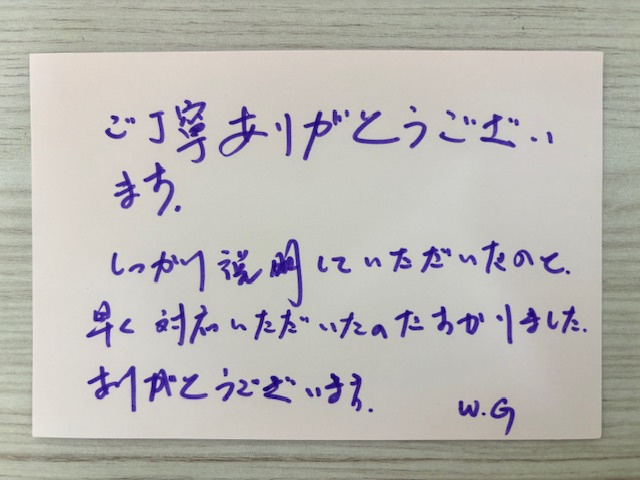 ご丁寧ありがとうござい
ます.
しっかり説明していただいたのと.
早く対応いただいたのたすかりました.
ありがとうございます.
W.G